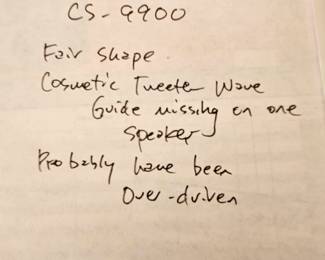 CS-9900
Fair shape
Cosmetic Tweeter Wave
Guide missing on one
speaker
Probably have been
Over-driven